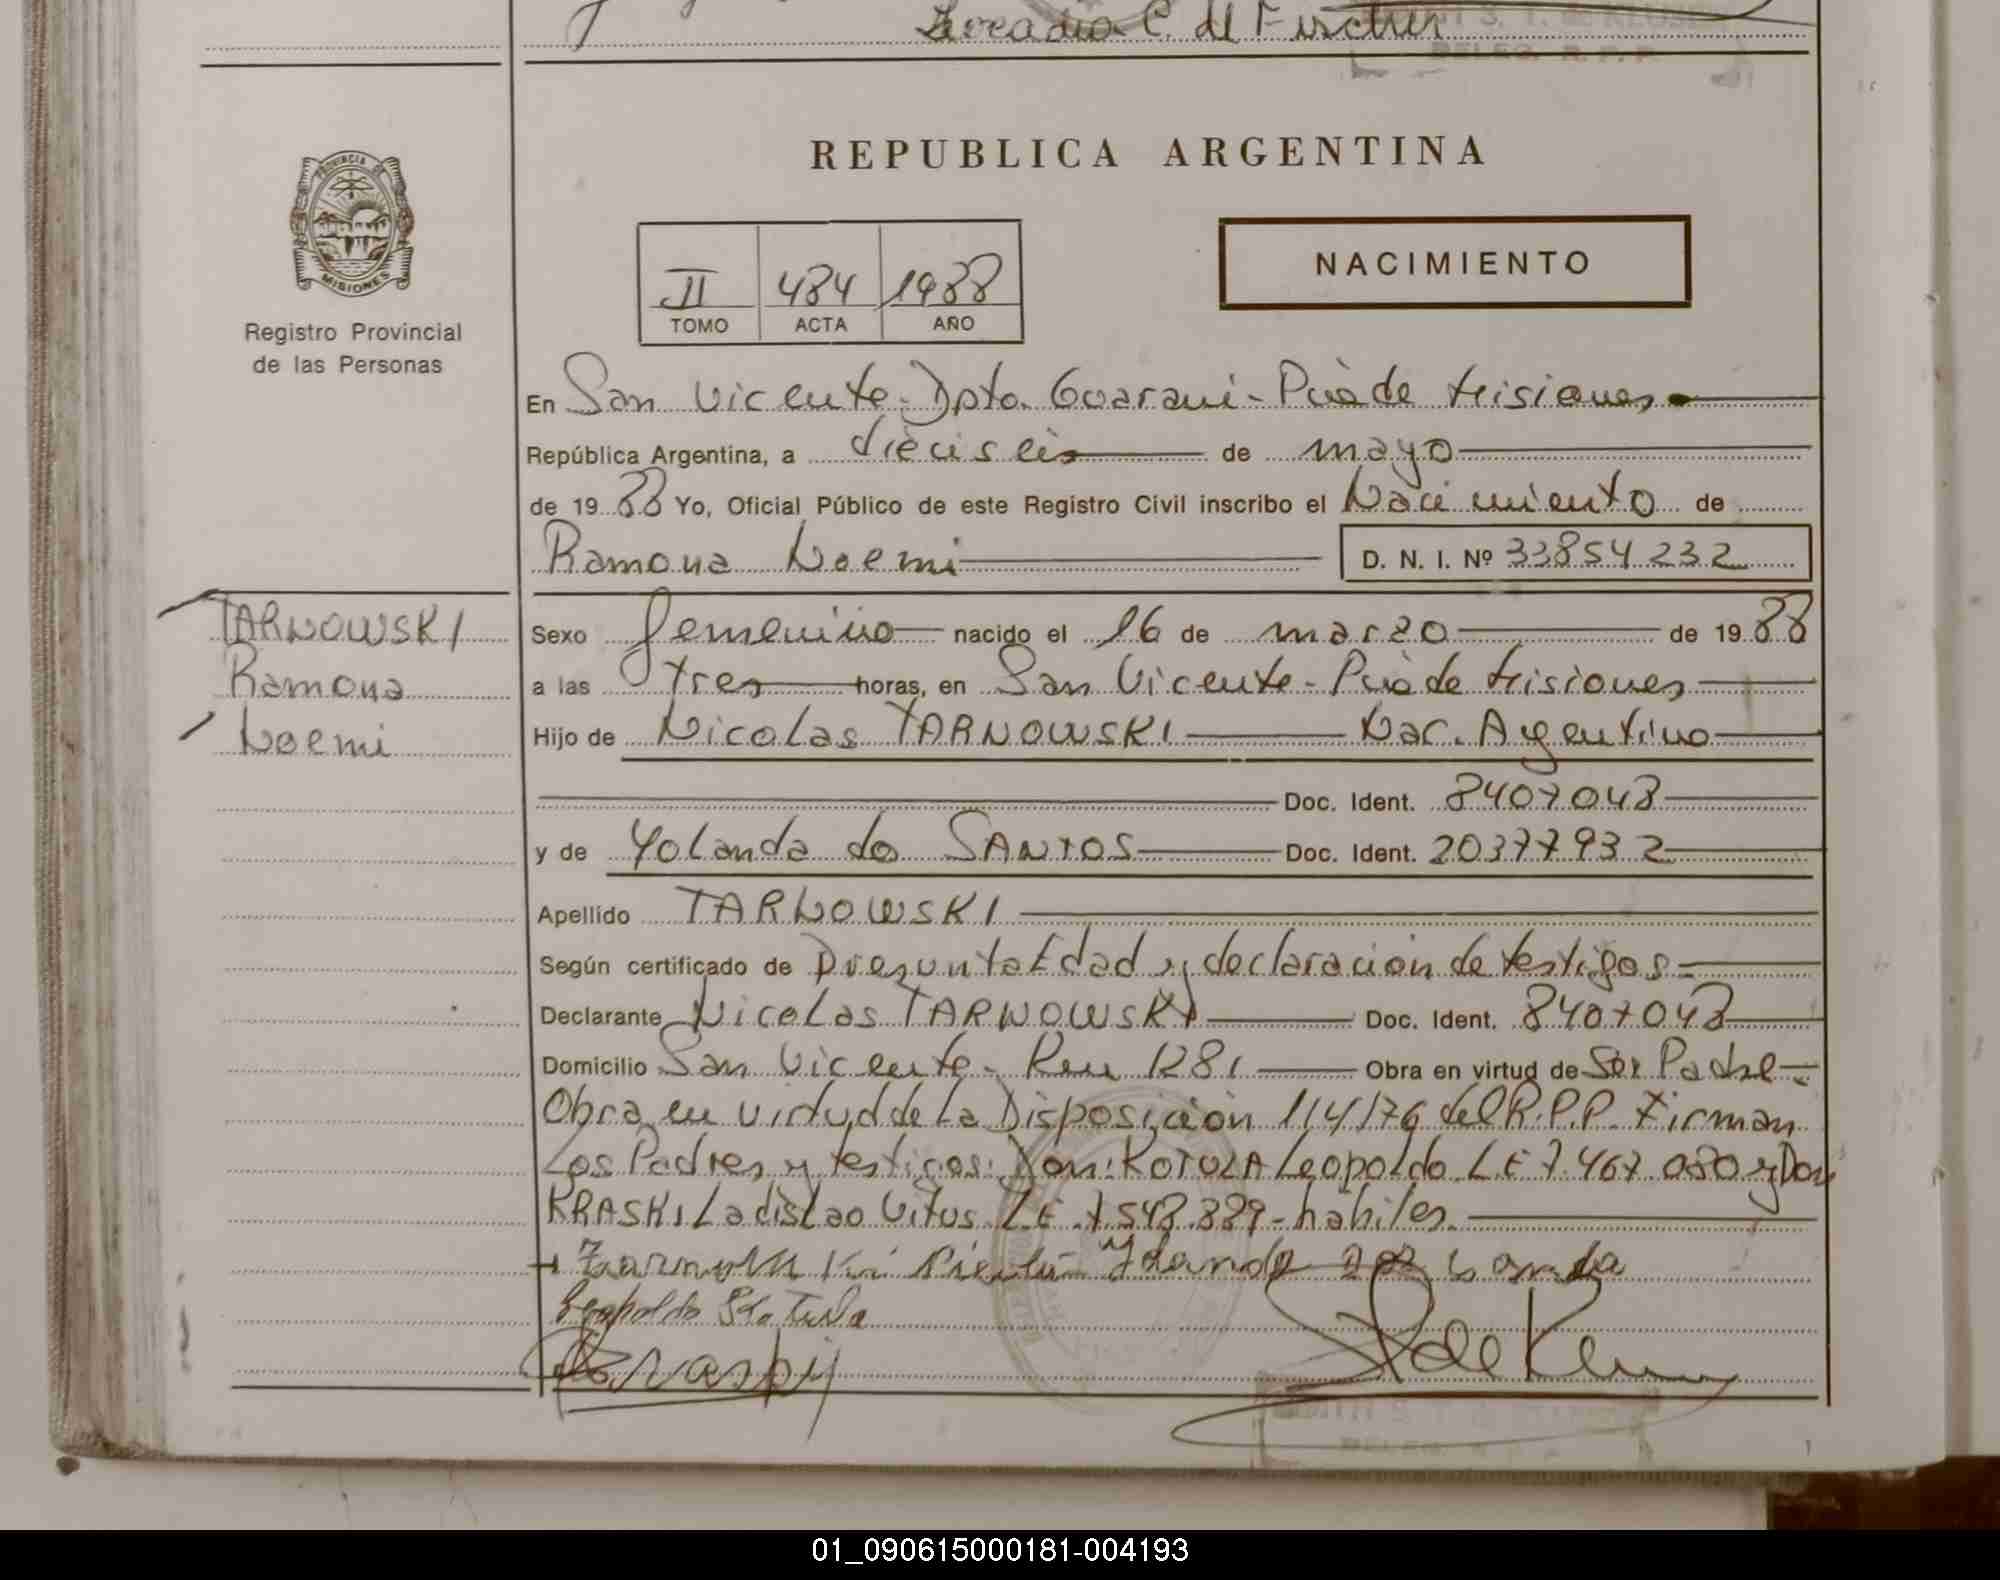 C. de Fischer
DELEG. R. P. P.
PROVINCIA DE
MISIONES
Registro Provincial
de las Personas
REPUBLICA ARGENTINA
II 484 1988
TOMO ACTA AÑO
NACIMIENTO
En San Vicente - Dpto. Guarani - Pcia de Misiones
República Argentina, a dieciseis de mayo
de 1988 Yo, Oficial Público de este Registro Civil inscribo el Nacimiento de
Ramona Noemi D. N. I. Nº 33854232
TARNOWSKI
Ramona
Noemi
Sexo femenino nacido el 16 de marzo de 1988
a las tres horas, en San Vicente - Pcia de Misiones
Hijo de Nicolas TARNOWSKI Nac. Argentino
Doc. Ident. 8407048
y de Yolanda dos SANTOS Doc. Ident. 20377932
Apellido TARNOWSKI
Según certificado de Presuntaedad y declaracion de testigos
Declarante Nicolas TARNOWSKI Doc. Ident. 8407048
Domicilio San Vicente - Km 1281 Obra en virtud de Ser Padre
Obra en virtud de la Disposicion 114/76 del R.P.P. Firman
Los Padres y testigos: Don: KOTULA Leopoldo L.E 7.467.080 y Don
KRASKI Ladislao Vitus L.E 7.548.889 - habiles.
Leopoldo Kotula
01_090615000181-004193